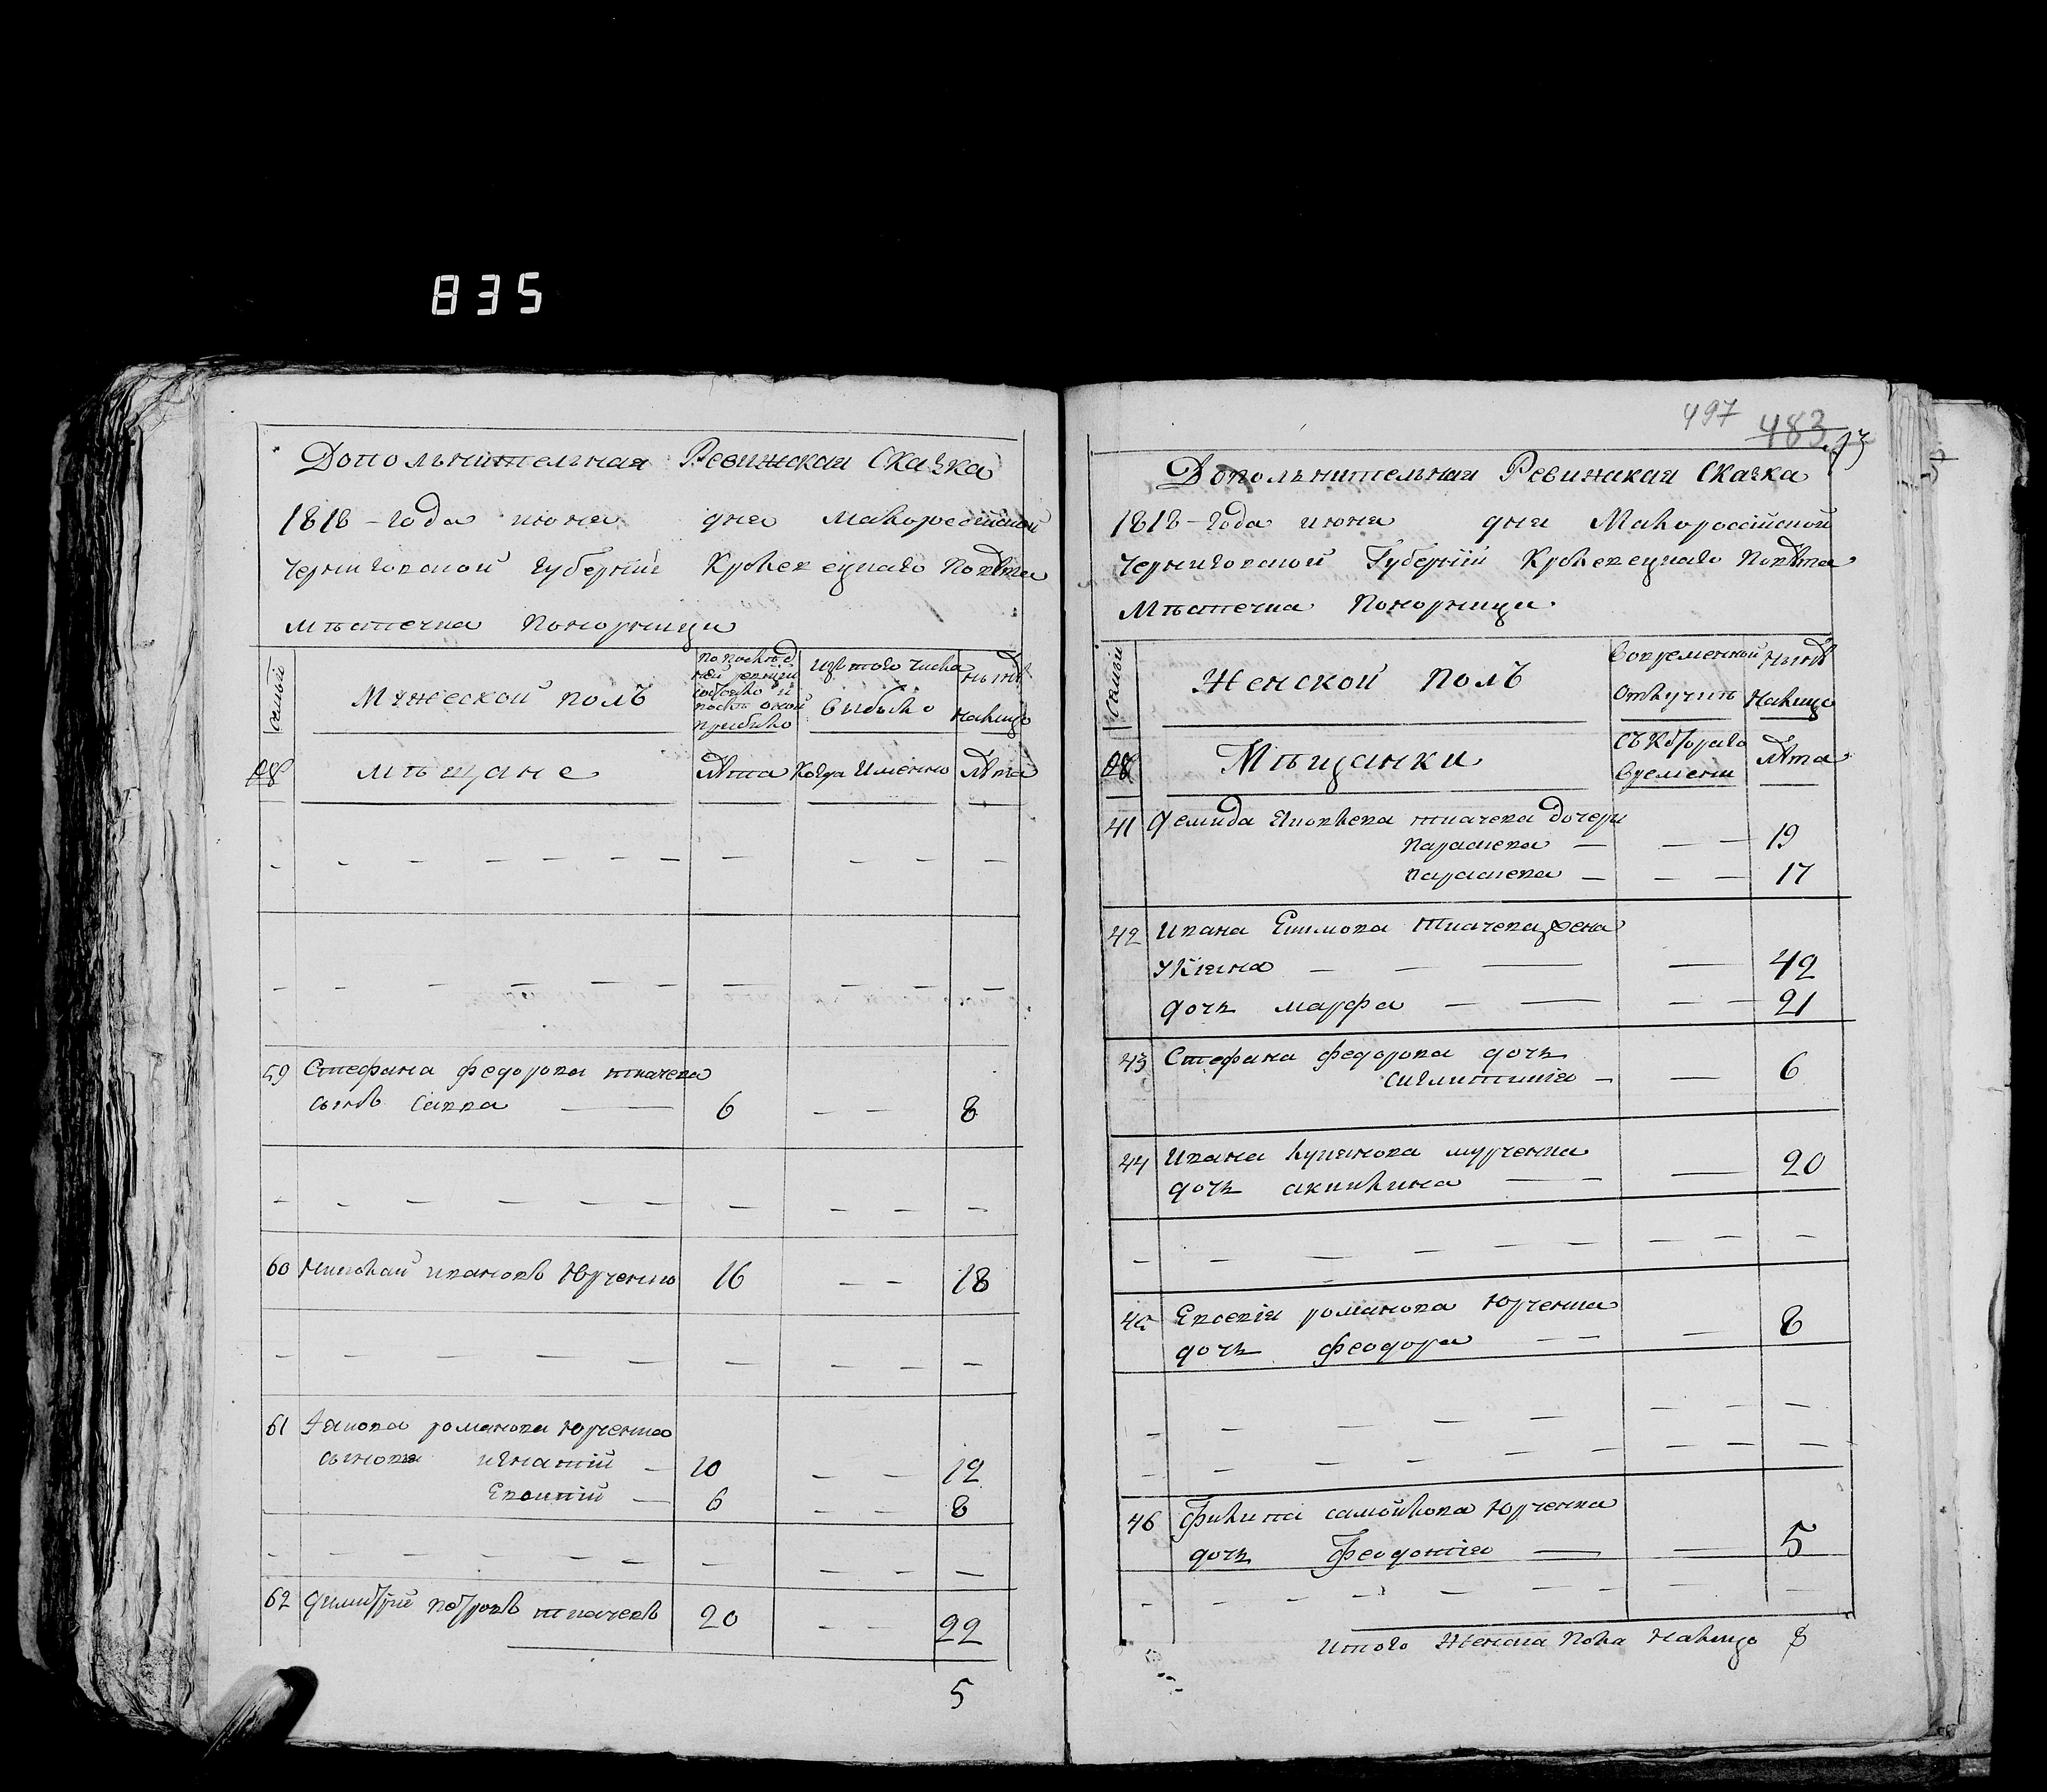 835
Дополънительная Ревижская Сказка
1818 – года июня дня Малоросійской
Черниговской губерніи Кролевецкаго Повѣта
Мѣстечка Понорницы
семьи
Мужеской полъ
по послѣд
ней ревизіи
состояло и
послѣ оной
прибыло
изъ того числа
выбыло
нынѣ
налицо
№
мѣщане
лѣта
Когда Именно
лѣта
59 Стефана федорова ткачева
сынъ Савва 6 8
60 Николай ивановъ Юрченко 16 18
61 Якова романова Юрченка
сыновя игнатій 10 12
6 8
62 Димитрій петровъ ткачевъ 20 22
5
497 483
Дополънительная Ревижская Сказка
1818 – года июня дня Малороссійской
Черниговской Губерніи Кролевецкаго Повѣта
Мѣстечка Понорницы
семьи
Женской полъ
Вовременной
отлучкѣ
нынѣ
Налицо
№
Мѣщанки
съ котораго
времени
лѣта
41 Демида Яковлева ткачева дочери
Параскева 19
параскева 17
42 Ивана Ефимова Ткачева жена
Уліяна 42
дочь марфа 21
43 Стефана федорова дочь
6
44 Ивана лукянова юрченка
дочь акилина 20
45 Евсевія романова Юрченка
дочь феодора 8
46 Филипа самойлова Юрченка
дочь Феодосія 5
Итого Женска Пола Налицо 8